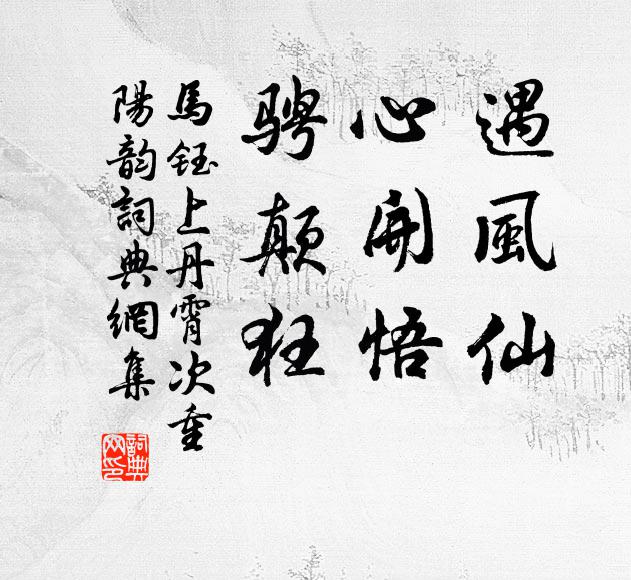 遇風仙
心開悟
骋颠狂
馬鈺上丹霄次重
陽韵詞典網集
詞典
网印